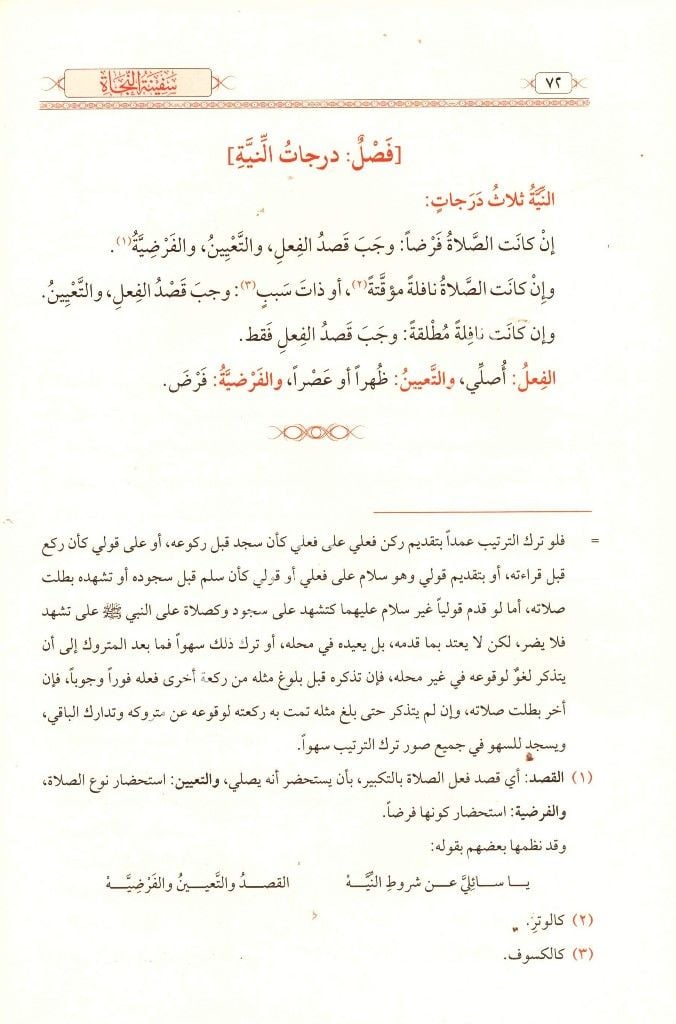 ٧٢
سَفِينَةُ النَّجَاةِ
[فَصْلٌ: درجاتُ النِّيَّةِ]
النيَّةُ ثلاثُ دَرَجاتٍ:
إنْ كانَت الصَّلاةُ فَرْضاً: وجَبَ قَصدُ الفِعلِ، والتَّعْيِينُ، والفَرْضِيَّةُ(١).
وإنْ كانَت الصَّلاةُ نافلةً مؤقَّتةً(٢)، أو ذاتَ سَببٍ(٣): وجبَ قَصْدُ الفِعلِ، والتَّعْيِينُ.
وإن كَانَت نافِلةً مُطْلقةً: وجَبَ قَصدُ الفِعلِ فَقط.
الفِعلُ: أُصلِّي، والتَّعيينُ: ظُهراً أو عَصْراً، والفَرْضيَّةُ: فَرْضَ.
= فلو ترك الترتيب عمداً بتقديم ركن فعلي على فعلي كأن سجد قبل ركوعه، أو على قولي كأن ركع
قبل قراءته، أو بتقديم قولي وهو سلام على فعلي أو قولي كأن سلم قبل سجوده أو تشهده بطلت
صلاته، أما لو قدم قولياً غير سلام عليهما كتشهد على سجود وكصلاة على النبي ﷺ على تشهد
فلا يضر، لكن لا يعتد بما قدمه، بل يعيده في محله، أو ترك ذلك سهواً فما بعد المتروك إلى أن
يتذكر لغوٌ لوقوعه في غير محله، فإن تذكره قبل بلوغ مثله من ركعة أخرى فعله فوراً وجوباً، فإن
أخر بطلت صلاته، وإن لم يتذكر حتى بلغ مثله تمت به ركعته لوقوعه عن متروكه وتدارك الباقي،
ويسجد للسهو في جميع صور ترك الترتيب سهواً.
(١) القصد: أي قصد فعل الصلاة بالتكبير، بأن يستحضر أنه يصلي، والتعيين: استحضار نوع الصلاة،
والفرضية: استحضار كونها فرضاً.
وقد نظمها بعضهم بقوله:
يــا ســائِليَّ عــن شروطِ النيَّــهْ القصــدُ والتَّعيــينُ والفَرْضِيَّــهْ
(٢) كالوترِ.
(٣) كالكسوف.